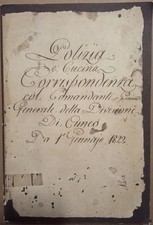 Polizia
Corrispondenza
col Comandante
Generale della Divisione
Di Cuneo
Da 1º Gennajo 1822